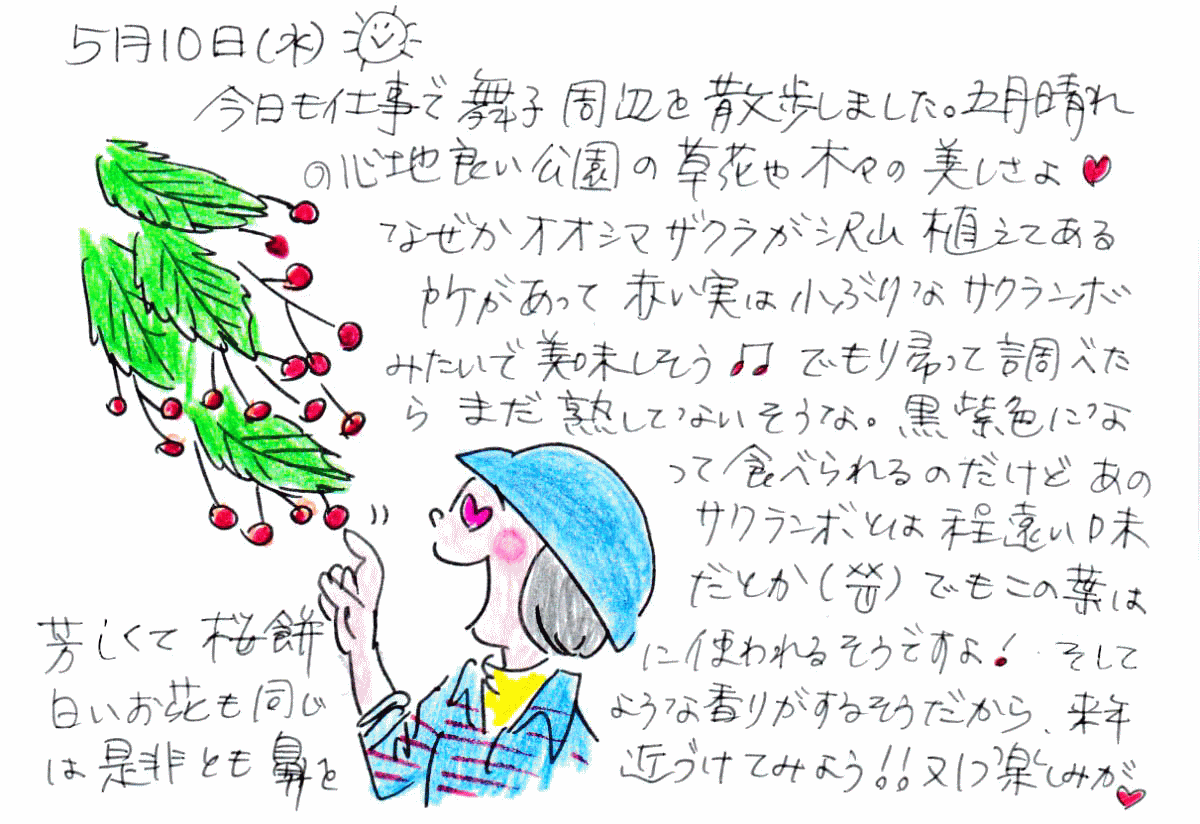 5月10日(水)
今日も仕事で舞子周辺を散歩しました。五月晴れ
の心地良い公園の草花や木々の美しさよ
なぜかオオシマザクラが沢山植えてある
所があって赤い実は小ぶりなサクランボ
みたいで美味しそう でもり帰って調べた
ら まだ熟してないそうな。黒紫色にな
って食べられるのだけど あの
サクランボとは程遠い味
だとか(笑)でもこの葉は
芳しくて桜餅に使われるそうですよ! そして
白いお花も同じような香りがするそうだから、来年
は是非とも鼻を近づけてみよう!!又1つ楽しみが